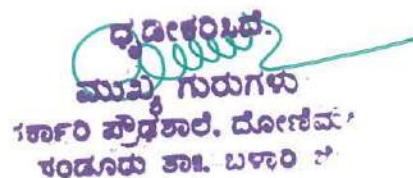 ಧೃಡೀಕರಿಸಿದೆ.
ಮುಖ್ಯ ಗುರುಗಳು
ರ್ಕಾರಿ ಪ್ರೌಢಶಾಲೆ. ದೋಣಿಮ
ಸಂಡೂರು ತಾಃ. ಬಳಾರಿ